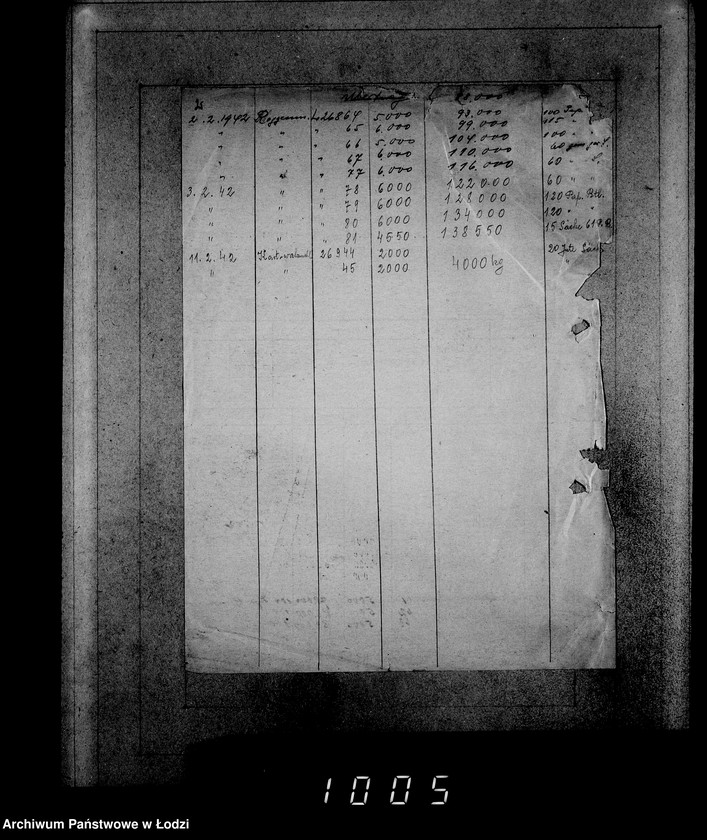 88.000
2.2.1942 Roggenm. L 26864 5.000 93.000 100 Pap.
" " " 65 6.000 99.000 115 " "
" " " 66 5.000 104.000 100 " "
" " " 67 6.000 110.000 60
" " " 77 6.000 116.000 60 "
3.2.42 " " 78 6000 122000 60 " "
" " " 79 6000 128000 120 Pap. Btl.
" " " 80 6000 134000 120 " "
" " " 81 4550 138550 15 Säcke
11.2.42 26944 2000 20 Jute Säck
" " 45 2000 4000 kg "
1005
Archiwum Państwowe w Łodzi